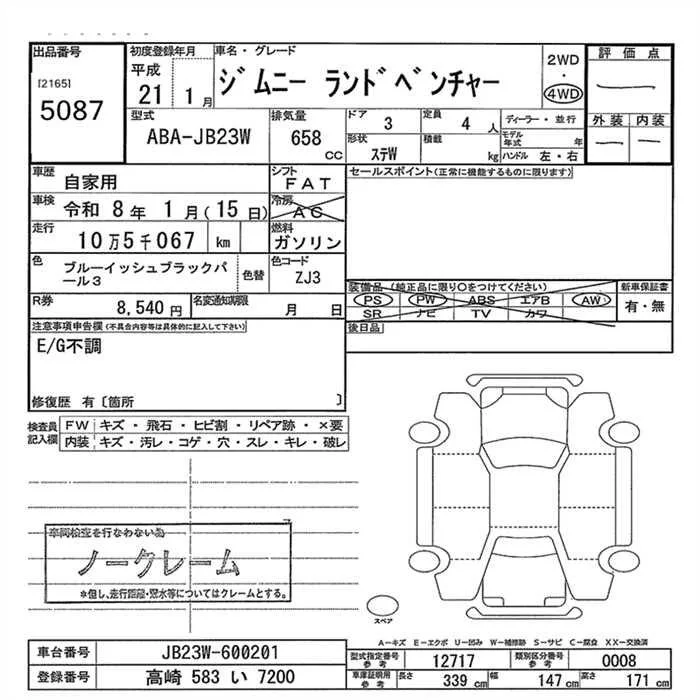 出品番号
[2165]
5087
初度登録年月
平成
21 1 月
車名・グレード
ジムニー ランドベンチャー
2WD
・
4WD
評価点
外装 内装
型式
ABA-JB23W
排気量
658
CC
ドア
3
定員
4 人
形状
ステW
積載
kg
ディーラー・並行
モデル年式 年
ハンドル 左・右
車歴
自家用
シフト
FAT
車検
令和 8年 1月(15日)
冷房
AC
走行
10万5千067 km
燃料
ガソリン
色
ブルーイッシュブラックパール3
色替
色コード
ZJ3
R券
8,540 円
名変通知期限
月 日
セールスポイント(正常に機能するものに限ります)
装備品(純正品に限り○をつけてください)
PS PW ABS エアB AW
SR ナビ TV カワ
新車保証書
有・無
後日品
注意事項申告欄(不具合内容等は具体的に記入して下さい)
E/G不調
修復歴 有〔箇所 〕
検査員記入欄
FW キズ・飛石・ヒビ割・リペア跡・×要
内装 キズ・汚レ・コゲ・穴・スレ・キレ・破レ
車両検査を行なわない為
ノークレーム
*但し、走行距離・冠水等についてはクレームとする。
スペア
A-キズ E-エクボ U-凹み W-補修跡 S-サビ C-腐食 XX-交換済
車台番号 JB23W-600201
登録番号 高崎 583 い 7200
型式指定番号参考 12717
類別区分番号参考 0008
車庫証明用参考
長さ 339 cm
幅 147 cm
高さ 171 cm